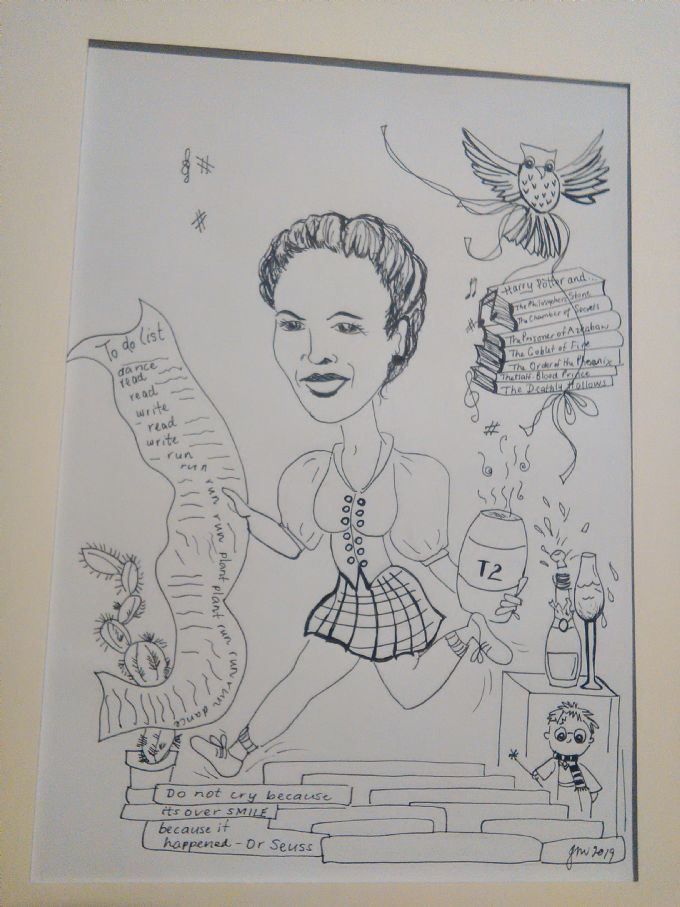 To do list
dance
read
read
write
- read
write
- run
run
run
run
plant
plant
run
run
run
dance
Harry Potter and...
The Philosophers Stone
The Chamber of Secrets
The Prisoner of Azkaban
The Goblet of Fire
The Order of the Phoenix
The Half-Blood Prince
The Deathly Hallows
T2
Do not cry because
its over SMILE
because it
happened - Dr Seuss
2019